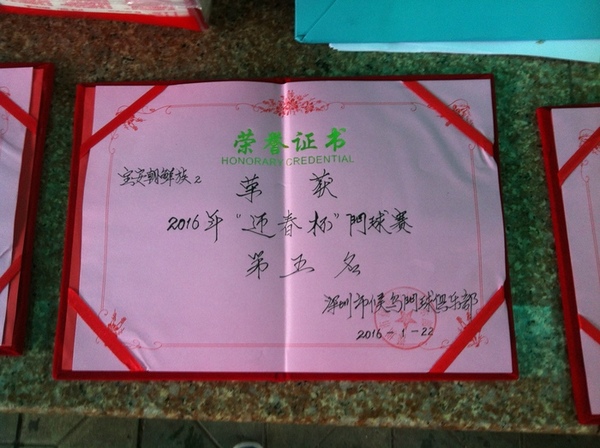 荣誉证书
HONORARY CREDENTIAL
宝安朝鲜族2
荣 获
2016年“迎春杯”門球赛
第五名
深圳市候鸟門球俱乐部
2016-1-22